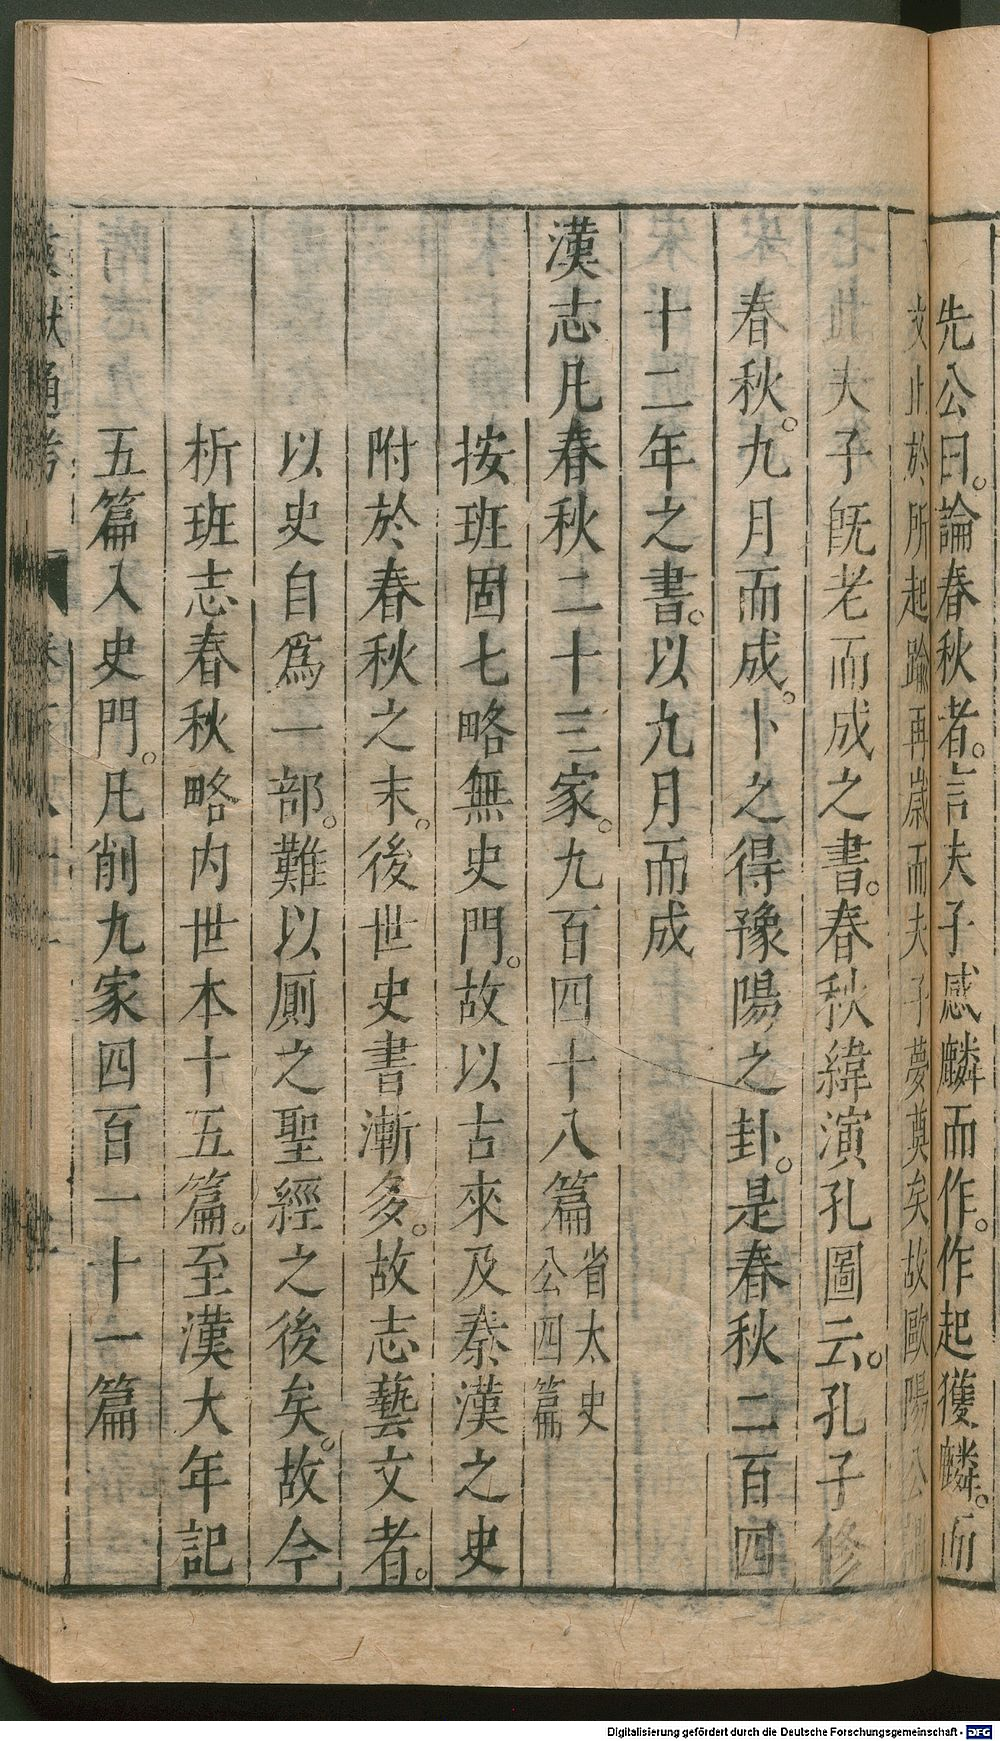 先公曰。論春秋者。言夫子感麟而作。作起獲麟。而
文止於所起踰再歲而夫子夢奠矣故歐陽公
夫子旣老而成之書。春秋緯演孔圖云。孔子修
春秋。九月而成。卜之得豫陽之卦。是春秋二百四
十二年之書。以九月而成
漢志凡春秋二十三家。九百四十八篇省太史公四篇
按班固七略無史門。故以古來及秦漢之史
附於春秋之末。後世史書漸多。故志藝文者。
以史自爲一部。難以厠之聖經之後矣。故今
析班志春秋略内世本十五篇。至漢大年記
五篇入史門。凡削九家四百一十一篇
獻通考
Digitalisierung gefördert durch die Deutsche Forschungsgemeinschaft - DFG